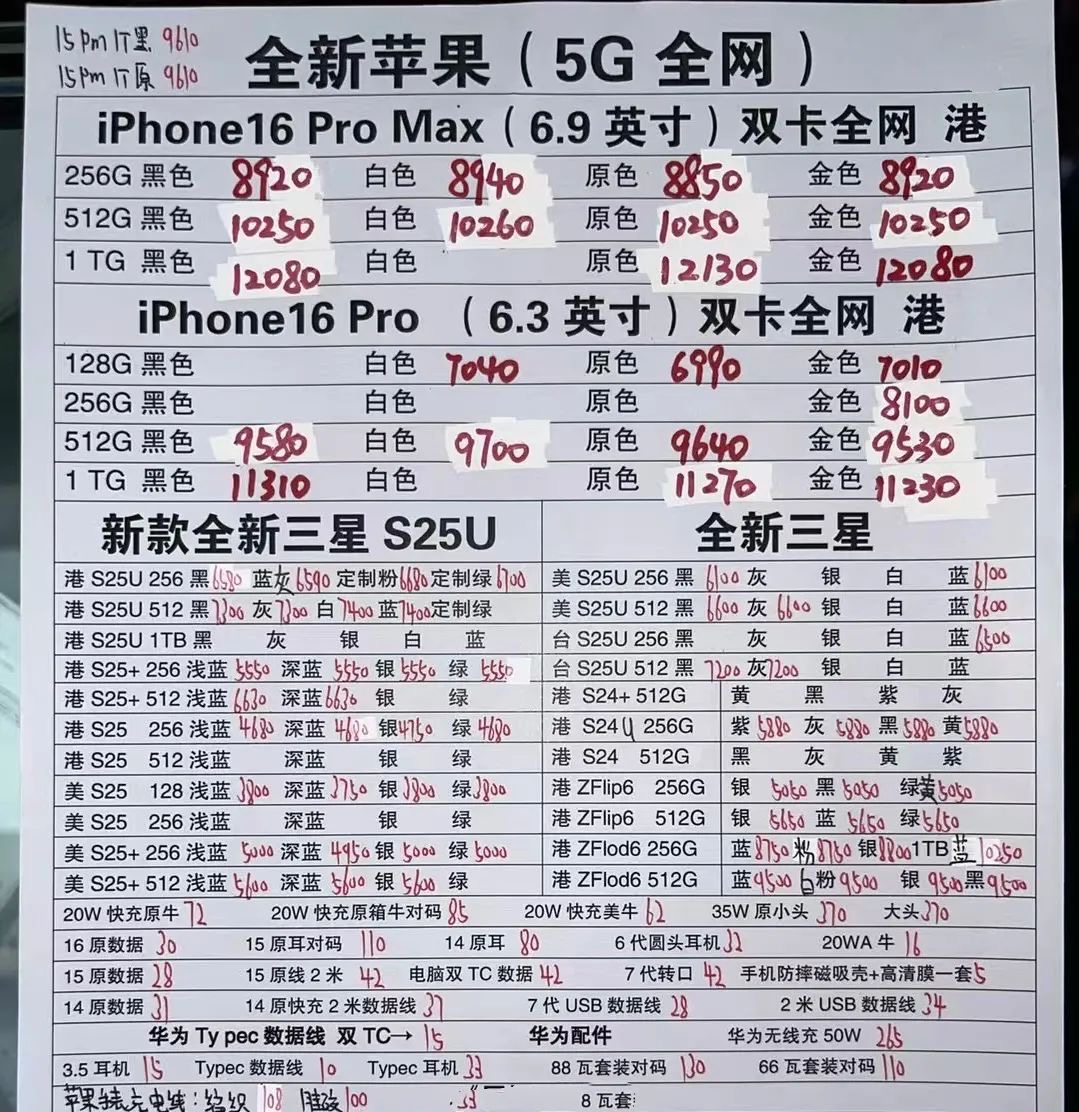 15Pm 1T黑 9610
15Pm 1T原 9610
全新苹果(5G 全网)
iPhone16 Pro Max(6.9 英寸)双卡全网 港
256G 黑色 8920 白色 8940 原色 8850 金色 8920
512G 黑色 10250 白色 10260 原色 10250 金色 10250
1 TG 黑色 12080 白色 原色 12130 金色 12080
iPhone16 Pro (6.3 英寸)双卡全网 港
128G 黑色 白色 7040 原色 6990 金色 7010
256G 黑色 白色 原色 金色 8100
512G 黑色 9580 白色 9700 原色 9640 金色 9530
1 TG 黑色 11310 白色 原色 11270 金色 11230
新款全新三星 S25U
港 S25U 256 黑 6580 蓝灰 6590 定制粉 6680 定制绿 6700
港 S25U 512 黑 7300 灰 7300 白 7400 蓝 7400 定制绿
港 S25U 1TB 黑 灰 银 白 蓝
港 S25+ 256 浅蓝 5550 深蓝 5550 银 5550 绿 5550
港 S25+ 512 浅蓝 6630 深蓝 6630 银 绿
港 S25 256 浅蓝 4680 深蓝 4680 银 4750 绿 4680
港 S25 512 浅蓝 深蓝 银 绿
美 S25 128 浅蓝 3800 深蓝 3750 银 3800 绿 3800
美 S25 256 浅蓝 深蓝 银 绿
美 S25+ 256 浅蓝 5000 深蓝 4950 银 5000 绿 5000
美 S25+ 512 浅蓝 5600 深蓝 5600 银 5600 绿
全新三星
美 S25U 256 黑 6100 灰 银 白 蓝 6100
美 S25U 512 黑 6600 灰 6600 银 白 蓝 6600
台 S25U 256 黑 灰 银 白 蓝 6500
台 S25U 512 黑 7200 灰 7200 银 白 蓝
港 S24+ 512G 黄 黑 紫 灰
港 S24U 256G 紫 5880 灰 5880 黑 5880 黄 5880
港 S24 512G 黑 灰 黄 紫
港 ZFlip6 256G 银 5050 黑 5050 绿黄 5050
港 ZFlip6 512G 银 5650 蓝 5650 绿 5650
港 ZFlod6 256G 蓝 8750 粉 8750 银 8800 1TB 蓝 10250
港 ZFlod6 512G 蓝 9500 白粉 9500 银 9500 黑 9500
20W 快充原牛 72 20W 快充原箱牛对码 85 20W 快充美牛 62 35W 原小头 370 大头 370
16 原数据 30 15 原耳对码 110 14 原耳 80 6 代圆头耳机 32 20WA 牛 16
15 原数据 28 15 原线 2 米 42 电脑双 TC 数据 42 7 代转口 42 手机防摔磁吸壳+高清膜一套 5
14 原数据 31 14 原快充 2 米数据线 37 7 代 USB 数据线 28 2 米 USB 数据线 34
华为 Ty pec 数据线 双 TC→ 15 华为配件 华为无线充 50W 265
3.5 耳机 15 Typec 数据线 10 Typec 耳机 33 88 瓦套装对码 130 66 瓦套装对码 110
108 100 33 8 瓦套